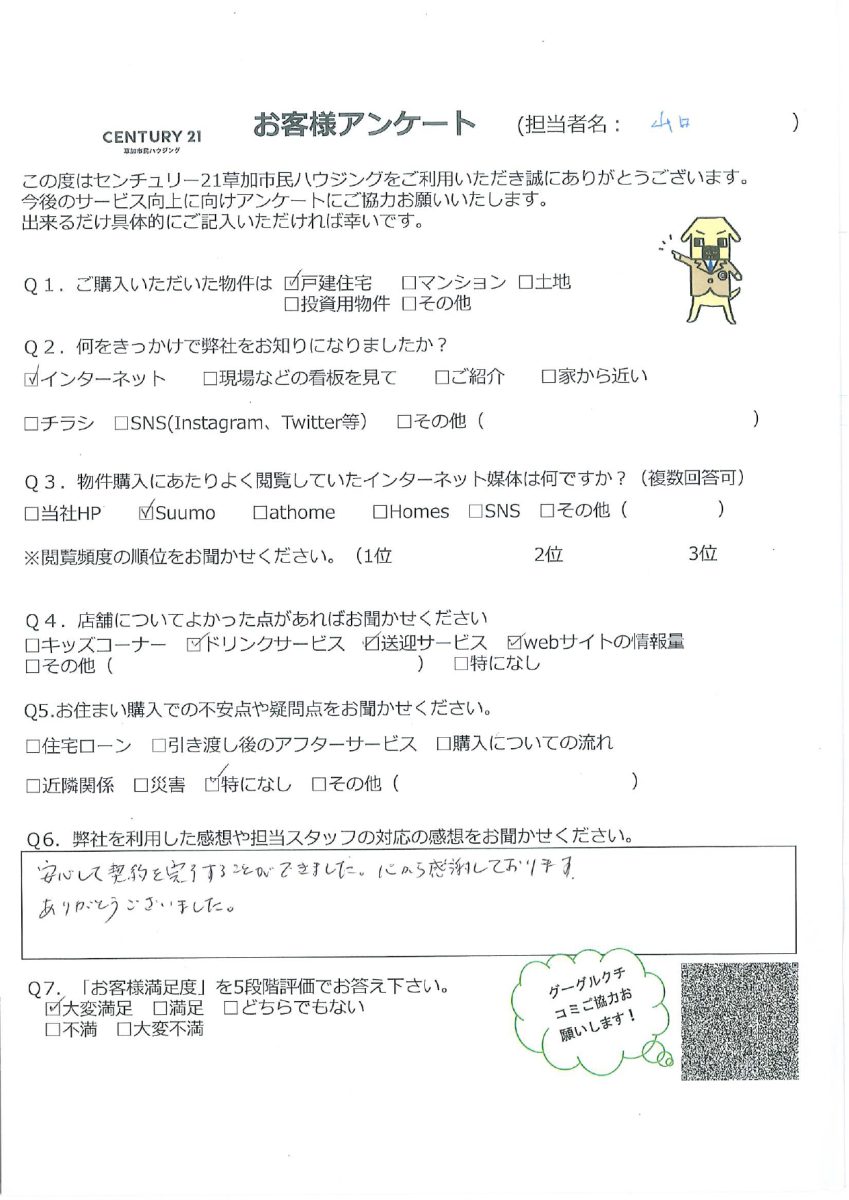 CENTURY 21
草加市民ハウジング
お客様アンケート (担当者名： 山口 )
この度はセンチュリー21草加市民ハウジングをご利用いただき誠にありがとうございます。
今後のサービス向上に向けアンケートにご協力お願いいたします。
出来るだけ具体的にご記入いただければ幸いです。
Q１．ご購入いただいた物件は ☑戸建住宅 □マンション □土地
□投資用物件 □その他
Q２．何をきっかけで弊社をお知りになりましたか？
☑インターネット □現場などの看板を見て □ご紹介 □家から近い
□チラシ □SNS(Instagram、Twitter等） □その他（ ）
Q３．物件購入にあたりよく閲覧していたインターネット媒体は何ですか？（複数回答可）
□当社HP ☑Suumo □athome □Homes □SNS □その他（ ）
※閲覧頻度の順位をお聞かせください。（1位 2位 3位
Q４．店舗についてよかった点があればお聞かせください
□キッズコーナー ☑ドリンクサービス ☑送迎サービス ☑webサイトの情報量
□その他（ ） □特になし
Q5.お住まい購入での不安点や疑問点をお聞かせください。
□住宅ローン □引き渡し後のアフターサービス □購入についての流れ
□近隣関係 □災害 ☑特になし □その他（ ）
Q6．弊社を利用した感想や担当スタッフの対応の感想をお聞かせください。
安心して契約を完了することができました。心から感謝しております
ありがとうございました。
Q7．「お客様満足度」を5段階評価でお答え下さい。
☑大変満足 □満足 □どちらでもない
□不満 □大変不満
グーグルクチ
コミご協力お
願いします！